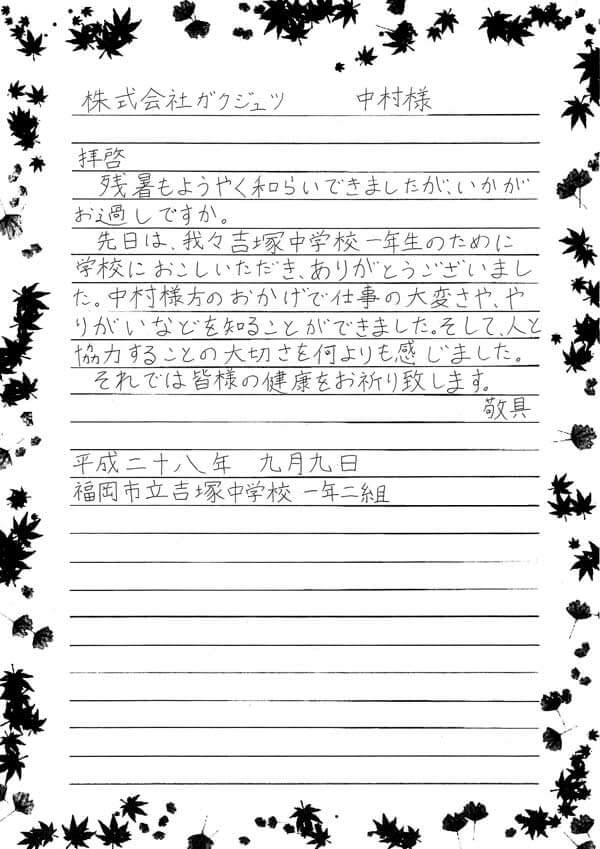 株式会社ガクジュツ　　　中村様
拝啓
　残暑もようやく和らいできましたが、いかが
お過しですか。
　先日は、我々吉塚中学校一年生のために
学校におこしいただき、ありがとうございまし
た。中村様方のおかげで仕事の大変さや、や
りがいなどを知ることができました。そして、人と
協力することの大切さを何よりも感じました。
　それでは皆様の健康をお祈り致します。
敬具
平成二十八年　九月九日
福岡市立吉塚中学校 一年二組